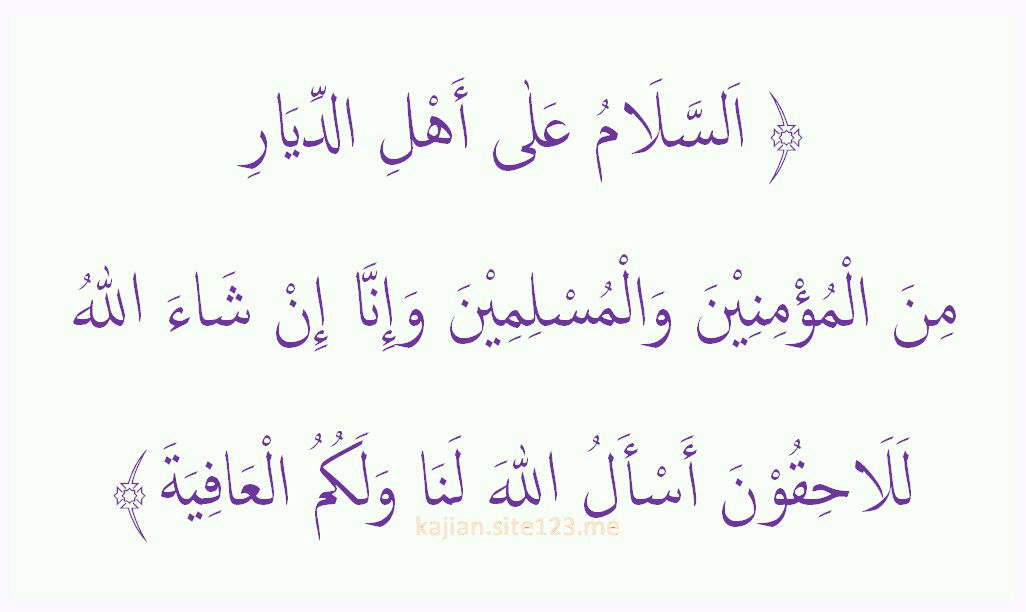 ﴿ اَلسَّلَامُ عَلٰى أَهْلِ الدِّيَارِ
مِنَ الْمُؤْمِنِيْنَ وَالْمُسْلِمِيْنَ وَإِنَّا إِنْ شَاءَ اللهُ
لَلَاحِقُوْنَ أَسْأَلُ اللهَ لَنَا وَلَكُمُ الْعَافِيَةَ ﴾
kajian.site123.me